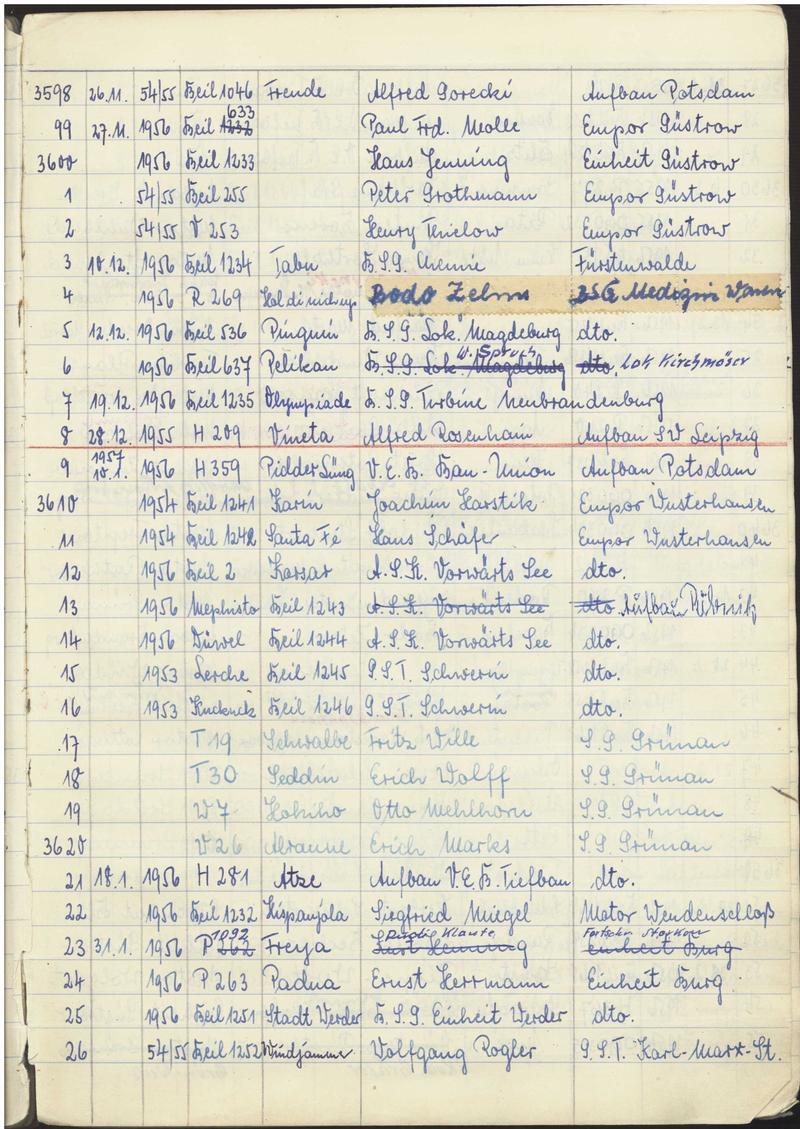 3598 26.11. 54/55 Beil 1046 Freude Alfred Gorecki Aufbau Potsdam
633
99 27.11. 1956 Beil 1232 Paul Frd. Molle Empor Güstrow
3600 1956 Beil 1233 Hans Jenning Einheit Güstrow
1 54/55 Beil 255 Peter Grothmann Empor Güstrow
2 54/55 V 253 Henry Thielow Empor Güstrow
3 10.12. 1956 Beil 1234 Tabu B.S.G. Chemie Fürstenwalde
4 1956 R 269 Hol di nich up Bodo Zelms BSG Medizin Waren
5 12.12. 1956 Beil 536 Pinguin B.S.G. Lok. Magdeburg dto.
W. Spruth
6 1956 Beil 637 Pelikan B.S.G. Lok. Magdeburg dto. Lok Kirchmöser
7 19.12. 1956 Beil 1235 Olympiade B.S.G. Turbine Neubrandenburg
8 28.12. 1955 H 209 Vineta Alfred Rosenhain Aufbau SW Leipzig
1957
9 10.1. 1956 H 359 Pidder Lüng V.E.B. Bau-Union Aufbau Potsdam
3610 1954 Beil 1241 Karin Joachim Harstik Empor Wusterhausen
11 1954 Beil 1242 Santa Fé Hans Schäfer Empor Wusterhausen
12 1956 Beil 2 Korsar A.S.K. Vorwärts See dto.
13 1956 Mephisto Beil 1243 A.S.K. Vorwärts See dto. Aufbau Ribnitz
14 1956 Düwel Beil 1244 A.S.K. Vorwärts See dto.
15 1953 Lerche Beil 1245 G.S.T. Schwerin dto.
16 1953 Kuckuck Beil 1246 G.S.T. Schwerin dto.
17 T 19 Schwalbe Fritz Wille S.G. Grünau
18 T 30 Seddin Erich Wolff S.G. Grünau
19 W 7 Hokiho Otto Mehlhorn S.G. Grünau
3620 V 26 Alraune Erich Marks S.G. Grünau
21 18.1. 1956 H 281 Atze Aufbau V.E.B. Tiefbau dto.
22 1956 Beil 1232 Hispanjola Siegfried Miegel Motor Wendenschloß
1092 Klaute Fortschr. Storkow
23 31.1. 1956 P 262 Freya Kurt Henning Einheit Burg
24 1956 P 263 Padua Ernst Herrmann Einheit Burg
25 1956 Beil 1251 Stadt Werder B.S.G. Einheit Werder dto.
26 54/55 Beil 1252 Windjammer Wolfgang Rogler G.S.T. Karl-Marx-St.